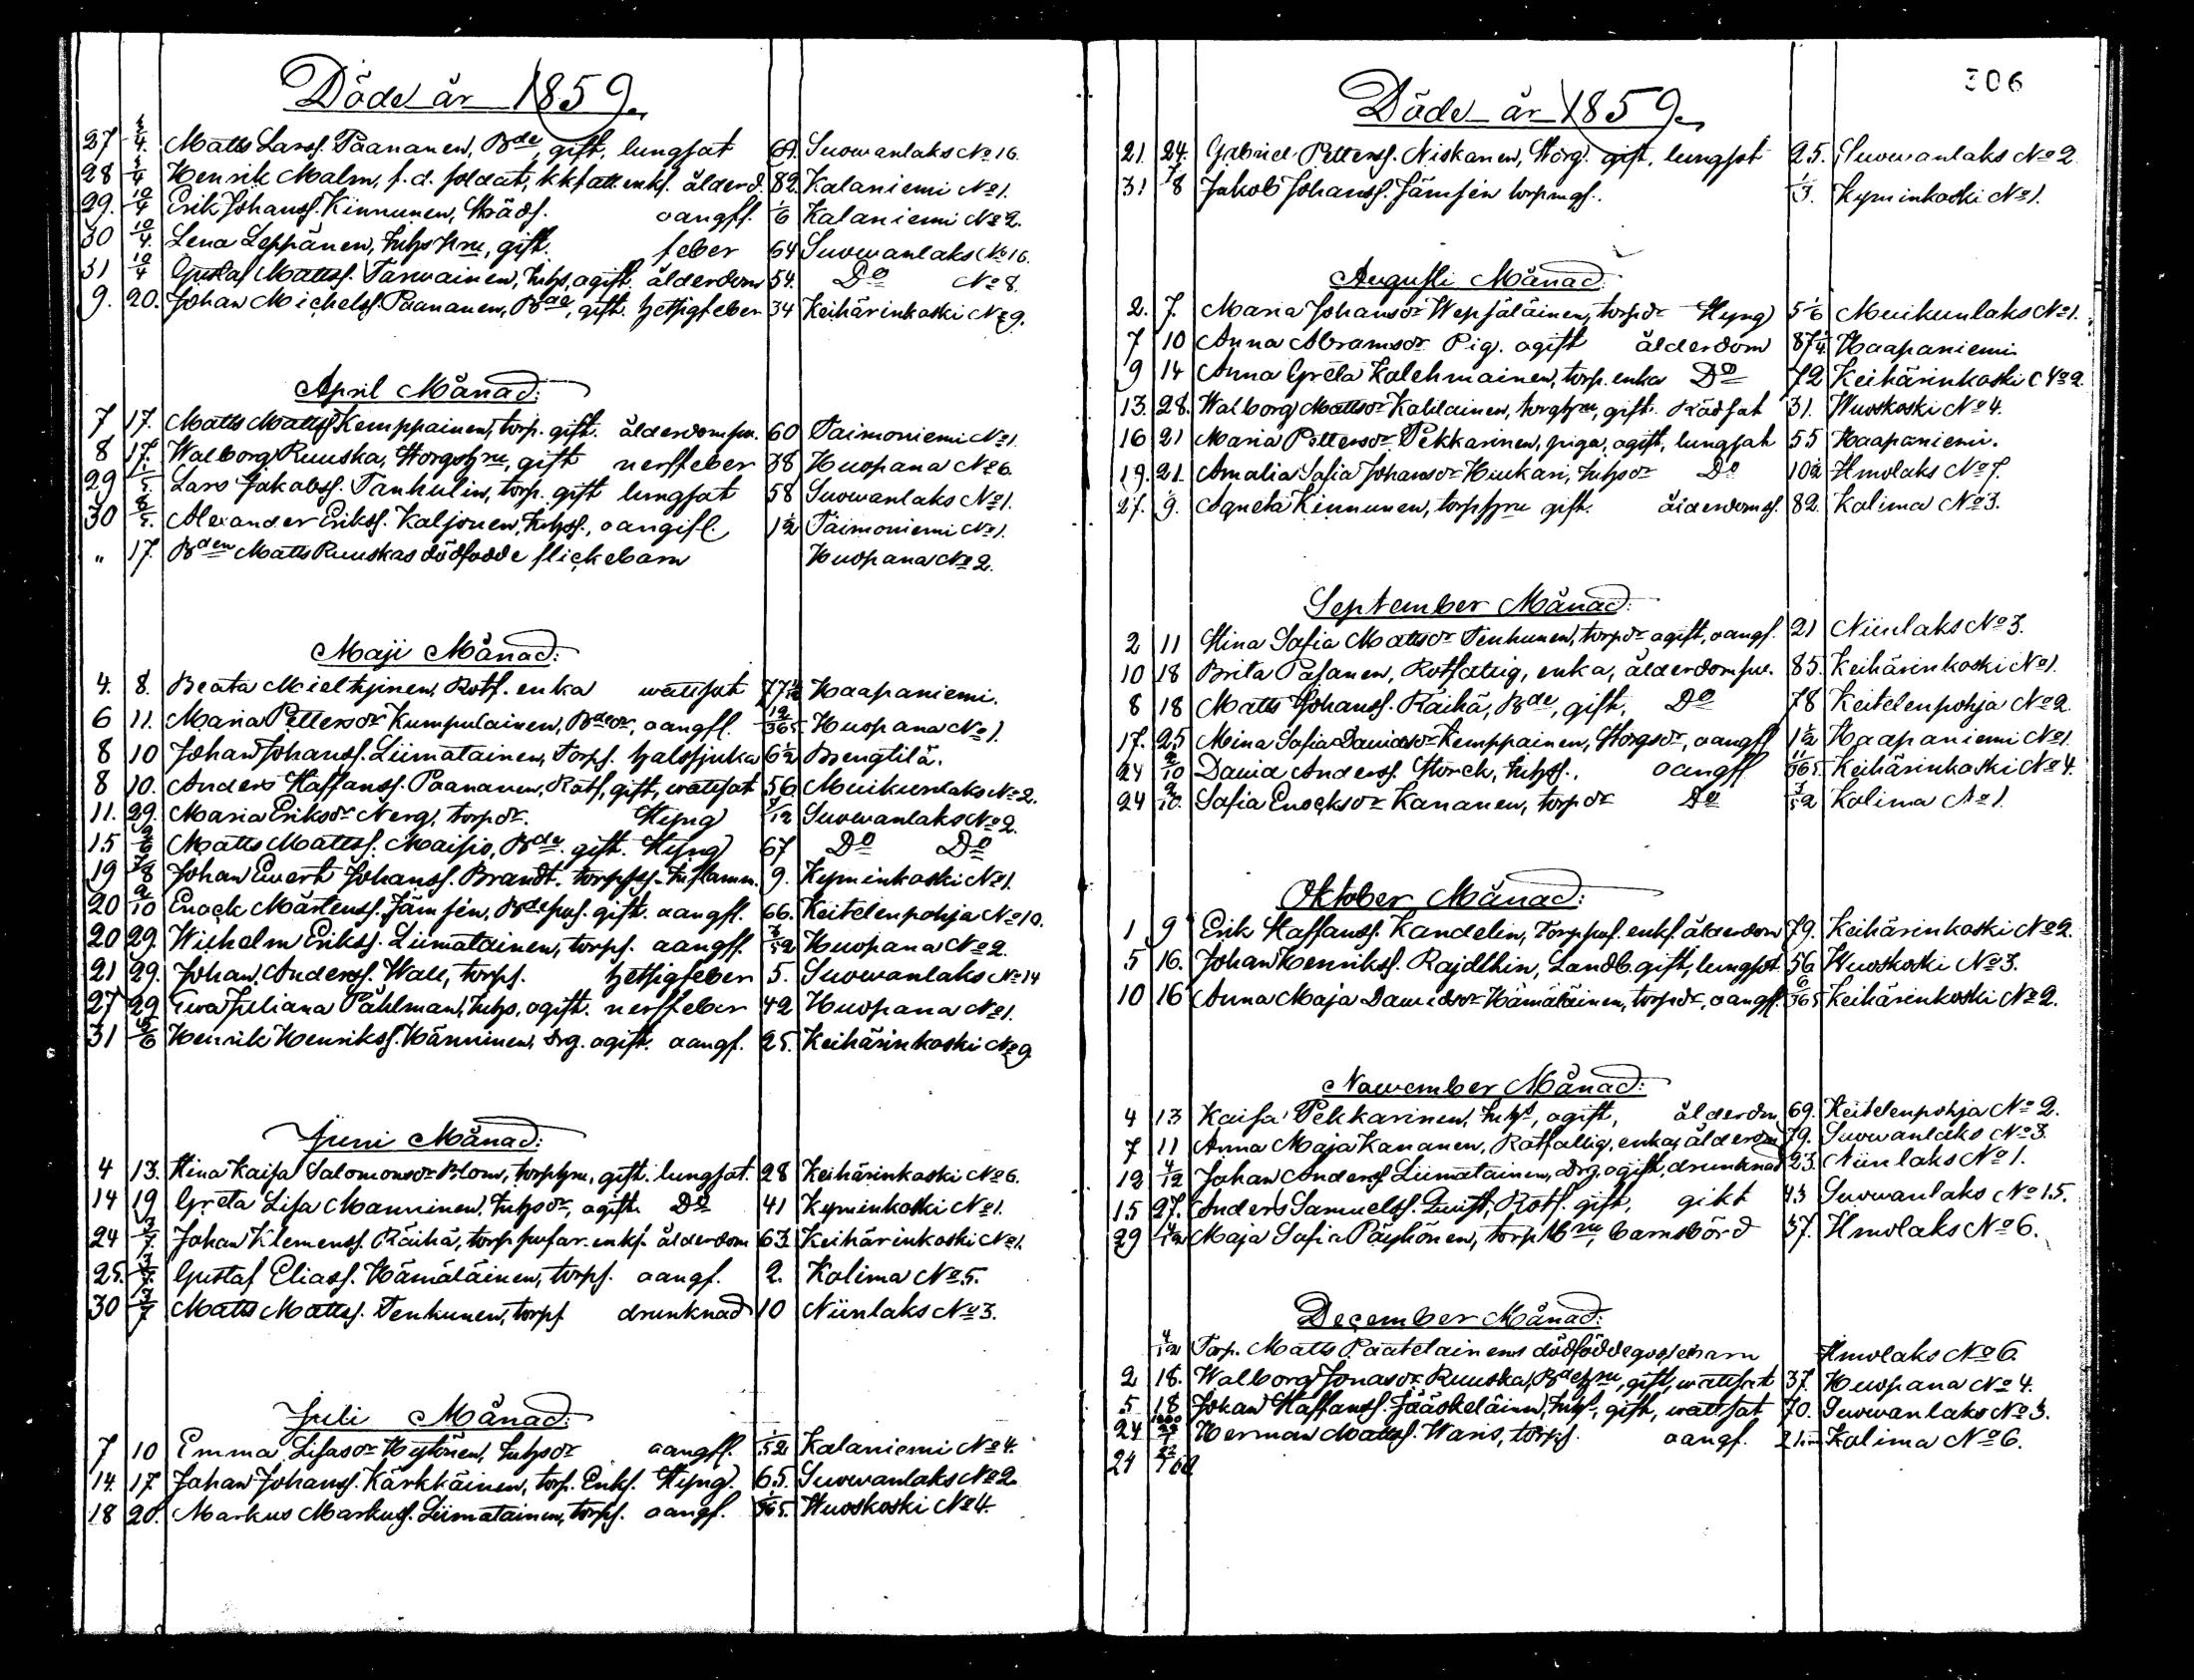 Döde år 1859.
27 3/4. Matts Larss. Paananen, Bde, gift, lungsot 69. Suowanlaks No 16.
28 3/4 Henrik Malm, f.d. soldat, enkl. ålderd. 82. Kalaniemi No 1.
29. 10/4 Erik Johanss. Kinnunen, oangff. 1/6 Kalaniemi No 2.
30 10/4. Lena Leppänen, Inhs hru, gift. feber 64 Suowanlaks No 16.
31 10/4 Gustaf Mattss. Tarwainen, Inhs, agift. ålderdom 54. Do No 8.
9. 20. Johan Michelss. Paananen, Bde, gift. hetsigfeber 34 Keihärinkoski No 9.
April Månad:
7 17. Matts Mattss Kemppainen, torp. gift. ålderdomsw. 60 Taimoniemi No 1.
8 17. Walborg Ruuska, gift nerffeber 38 Huopana No 6.
29 1/5. Lars Jakobss. Tanhulin, torp. gift lungsot 58 Suowanlaks No 1.
30 8/5. Alexander Erikss. Kaljonen, Inhss., oangifl. 1 1/2 Taimoniemi No 1.
" 17. Bden Matts Ruuskas dödfödde flickebarn Huopana No 2.
Maji Månad:
4. 8. Beata Mieltyinen, Rotf. enka wattsot 77 Haapaniemi.
6 11. Maria Pettersdr Kumpulainen, Bdedr, oangfl. 12/365 Huopana No 1.
8 10 Johan Johanss. Liimatainen, Torps. halssjuka 6 1/2 Brengtilä.
8 10. Anders Staffanss. Paananen, Rotf, gift, wattsot 56. Muikunlaks No 2.
11. 29. Maria Eriksdr Nerg, torpdr. Styng /12 Suowanlaks No 2.
15 2/6 Matts Mattss. Maisio, Bde. gift. Styng 67 Do Do
19 7/8 Johan Ewert Johanss. Brandt. Inflamm. 9. Kyminkoski No 1.
20 2/10 Enock Mårtenss. Jämsén, gift. oangfl. 66. Keitelenpohja No 10.
20 29. Wilhelm Erikss. Liimatainen, torps. oangff. 3/52 Huopana No 2.
21 29. Johan Anderss. Wall, torps. hetsigfeber 5. Suowanlaks No 14
27 29 Ewa Juliana Påhlman, Inhs, ogift. nerffeber 42 Huopana No 1.
31 5/6 Henrik Henrikss. Hänninen, drg. ogift. oangf. 25. Keihärinkoski No 9
Juni Månad:
4 13. Stina Kaisa Salomonsdr Blom, torphru, gift. lungsot. 28 Keihärinkoski No 6.
14 19 Greta Lisa Manninen, Inhsdr, ogift. Do 41 Kyminkoski No 1.
24 3/7. Johan Klemenss. Räihä, enkl. ålderdom 63. Keihärinkoski No 1.
25. 3/7. Gustaf Eliass. Hämäläinen, torps. oangf. 2. Kolima No 5.
30 3/7 Matts Mattss. Tenhunen, torps drunknad 10 Niinlaks No 3.
Juli Månad:
7 10 Emma Lisasdr Hytönen, Inhsdr oangff. 1/52 Kalaniemi No 4.
14. 17 Johan Johanss. Kärkkäinen, torp. Enkl. Styng. 65. Suowanlaks No 2
18 20. Markus Markuss. Liimatainen, torps. oangf. 1/365. Wuoskoski No 4.
306
Döde år 1859.
21. 24. Gabriel Petterss. Niskanen, Storg. gift, lungsot 25. Suowanlaks No 2
31 7/8 Jakob Johanss. Jämsén 1/3. Kyminkoski No 1.
Augusti Månad:
2. 7. Maria Johansdr Wepsäläinen, torpdr Styng 5 1/6 Muikunlaks No 1.
7 10 Anna Abramsdr Pig. ogift ålderdom 87 1/4 Haapaniemi
9 14 Anna Greta Kolehmainen, torp. enka Do 72 Keihärinkoski No 2
13. 28. Walborg Mattsdr Kablainen, torphru, gift. Rödsot 31. Wuoskoski No 4.
16 21 Maria Pettersdr Pekkarinen, piga, ogift, lungsot 55 Haapaniemi.
19. 21. Amalia Sofia Johansdr Huukari, Inhsdr Do 10 1/2 Ilmolaks No 7.
27. 9. Agneta Kinnunen, torphru gift. ålderdomsf. 82. Kolima No 3.
September Månad:
2 11 Stina Sofia Mattsdr Tenhunen, torpdr ogift, oangf. 21 Niinlaks No 3.
10 18 Brita Pasanen, Rotfattig, enka, ålderdomsw. 85. Keihärinkoski No 1.
8 18 Matts Johanss. Räihä, Bde, gift, Do 78 Keitelenpohja No 2
17. 25 Mina Sofia Davidsdr Kemppainen, Storgsdr, oangfl 1 1/2 Haapaniemi No 1
24 2/10 David Anderss. Storck, Inhss., oangfl 11/365 Keihärinkoski No 4.
24 2/10. Sofia Enocksdr Kananen, torpdr Do 3/52 Kolima No 1.
Oktober Månad:
1 9 Erik Staffanss. Kandelin, enkl. ålderdom 79. Keihärinkoski No 2.
5 16. Johan Henrikss. Rajdlhin, Landb. gift, lungsot. 56 Wuoskoski No 3.
10 16 Anna Maja Davidsdr Hämäläinen, torpdr, oangfl. 6/365 Keihärinkoski No 2.
Nowember Månad:
4 13 Kaisa Pekkarinen, Inhs, ogift, ålderdm 69. Keitelenpohja No 2.
7 11 Anna Maja Kananen, Rotfattig, enka, ålderdom 79. Suowanlaks No 3.
12 4/12 Johan Anderss Liimatainen, drg. ogift, drunknad 23. Niinlaks No 1.
15 27. Anders Samuelss. Quist, Rotf. gift, gikt 43 Suowanlaks No 15.
29 4/12 Maja Sofia Päyhönen, torp hru, barnsbörd 37. Ilmolaks No 6.
December Månad:
4/12 Torp. Matts Päätelainens dödfödde gossebarn Ilmolaks No 6
2 18. Walborg Jonasdr Ruuska, Bdehru, gift, wattsot 37. Huopana No 4.
5 18 Johan Staffanss. Jääskeläinn, Inhs, gift, wattsot 70. Suowanlaks No 3.
24 Herman Mattss. Waris, torps. oangf. Kolima No 6.
24